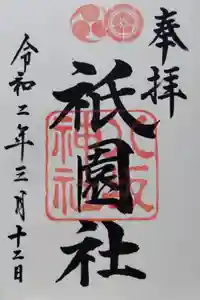 奉拝
祇園社
八坂神社
令和二年三月十二日